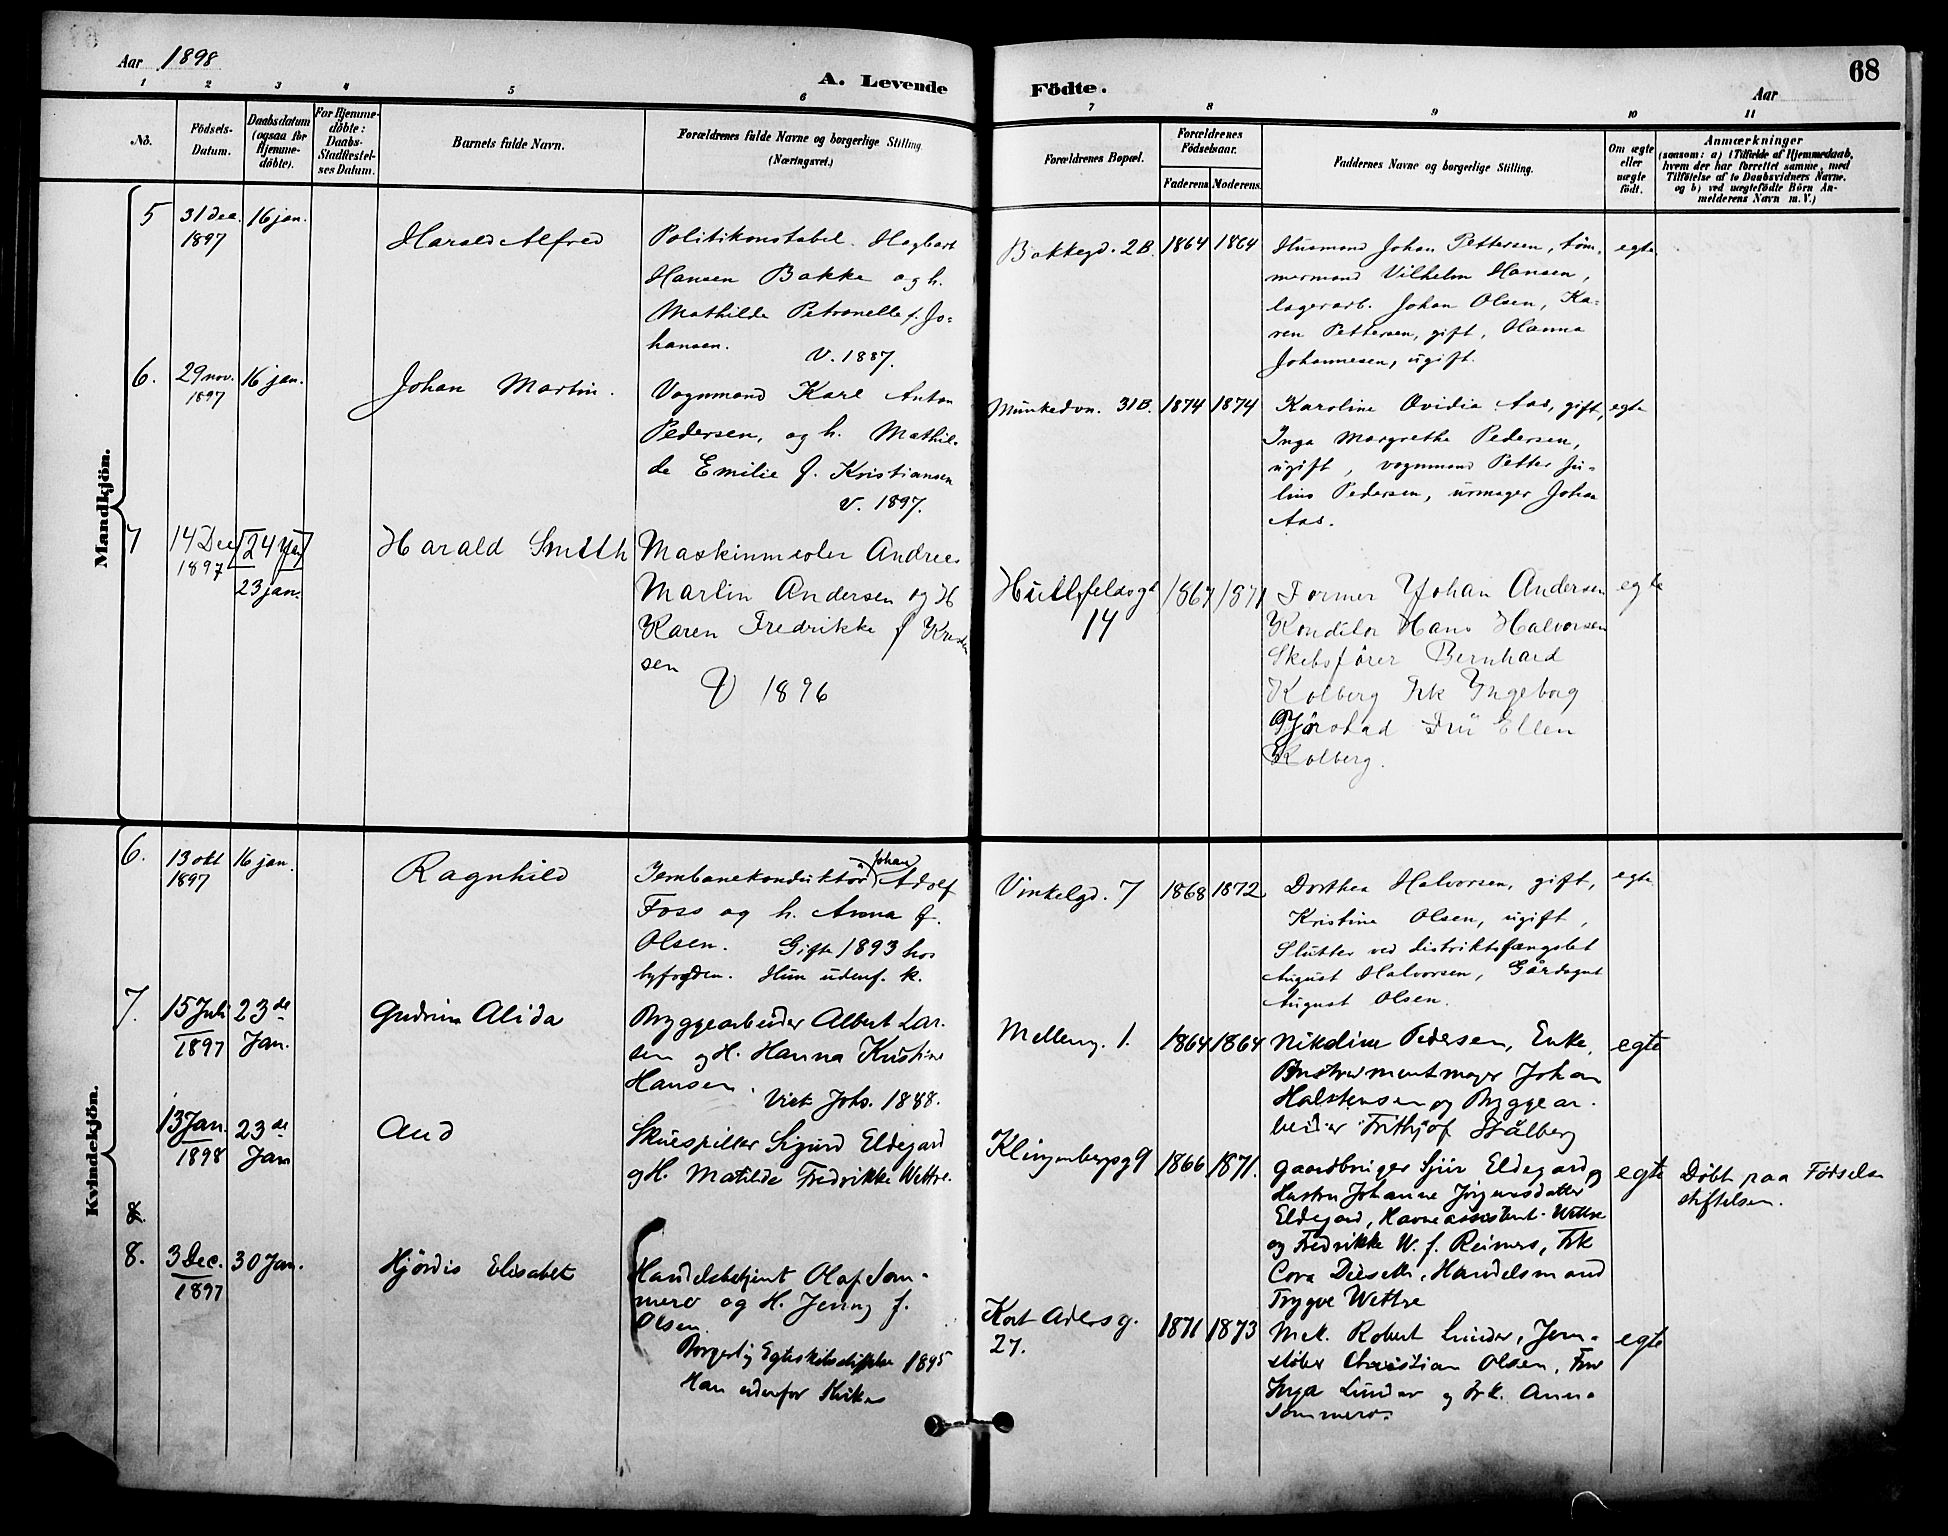 Aar 1898
A. Levende Födte.
68
Aar
1 2 3 4 5 6 7 8 9 10 11
No.
Födsels-
Datum.
Daabsdatum
(ogsaa for
Hjemme-
döbte).
For Hjemme-
döbte:
Daabs-
Stadfæstel-
ses Datum.
Barnets fulde Navn.
Forældrenes fulde Navne og borgerlige Stilling
(Næringsvei.)
Forældrenes Bopæl.
Forældrenes
Födselsaar.
Faderens Moderens.
Faddernes Navne og borgerlige Stilling.
Om ægte
eller
uægte
födt.
Anmærkninger
(saasom: a) i Tilfælde af Hjemmedaab,
hvem der har forrettet samme, med
Tilföielse af to Daabsvidners Navne.
og b) ved uægtefödte Börn An-
melderens Navn m. V.)
Mandkjön.
5
31 dec.
1897
16 jan.
Harald Alfred
Politikonstabel Hagbart
Hansen Bakke og h.
Mathilde Petronelle f. Jo-
hansen.
V. 1887.
Bakkegd. 2B.
1864 1864
Husmand Johan Pettersen, töm-
mermand Vilhelm Hansen,
lagerarb. Johan Olsen, Ka-
ren Pettersen, gift, Hanna
Johannesen, ugift.
egte
6.
29 nov.
1897
16 jan.
Johan Martin.
Vognmand Karl Anton
Pedersen, og h. Mathil-
de Emilie f. Kristiansen
V. 1897.
Munkedvn. 31B.
1874 1874
Karoline Ovidia Aas, gift,
Inga Margrethe Pedersen,
ugift, vognmand Petter Ju-
lius Pedersen, urmager Johan
Aas.
egte
7
14 Dec
1897
[24 Jan]
23 jan.
Harald Smith
Maskinmester Andreas
Martin Andersen og H
Karen Fredrikke f
sen
V 1896
Huitfeldsgt
14
1867 1871
Former Johan Andersen
Konditor Hans Halvorsen
Skibsfører Bernhard
Kolberg Frk Yngeborg
Fru Ellen
Kolberg.
egte
Kvindekjön.
6.
13 okt
1897
16 jan.
Ragnhild
Jernbanekonduktör Johan Adolf
Foss og h. Anna f.
Olsen. Gifte 1893 hos
byfogden. Hun udenf. k.
Vinkelgd. 7
1868 1872
Dorthea Halvorsen, gift,
Kristine Olsen, ugift,
Slutter ved distriktsfængslet
August Halvorsen, Gårdsgut
August Olsen.
egte
7.
15 Juli
1897
23de
Jan.
Gudrun Alida
Bryggearbeider Albert Lar-
sen og H. Hanna Kristine
Hansen.
Viet Johs. 1888.
Melleng. 1.
1864 1864
Nikoline Pedersen, Enke,
Instrumentmager Johan
Halstensen og Bryggear-
beider Frithjof Stålberg
egte
13 Jan.
1898
23de
Jan
Aud
Skuespiller Sigurd Eldegard
og H. Matilde Fredrikke Wettre.
Klingenbergsg 9
1866 1871.
Gaardbruger Sjur Eldegard og
Hustru Johanne Jörgensdatter
Eldegard, Havneassistent Wettre
og Fredrikke W. f. Reimers, Frk
Cora Dieseth, Handelsmand
Trygve Wettre
egte
Döbt paa Fødsels
stiftelsen.
8.
8.
3 Dec.
1897
30 Jan.
Hjördis Elisabet
Handelsbetjent Olaf Som-
mero og H. Jenny f.
Olsen.
Borgerlig Egteskab 1895
Han udenfor Kirken
Kort Adelersg.
27.
1871 1873
Mek. Robert Linder, Jern-
støber Christian Olsen, Fru
Inga Linder og Frk. Anna
Sommero.
egte